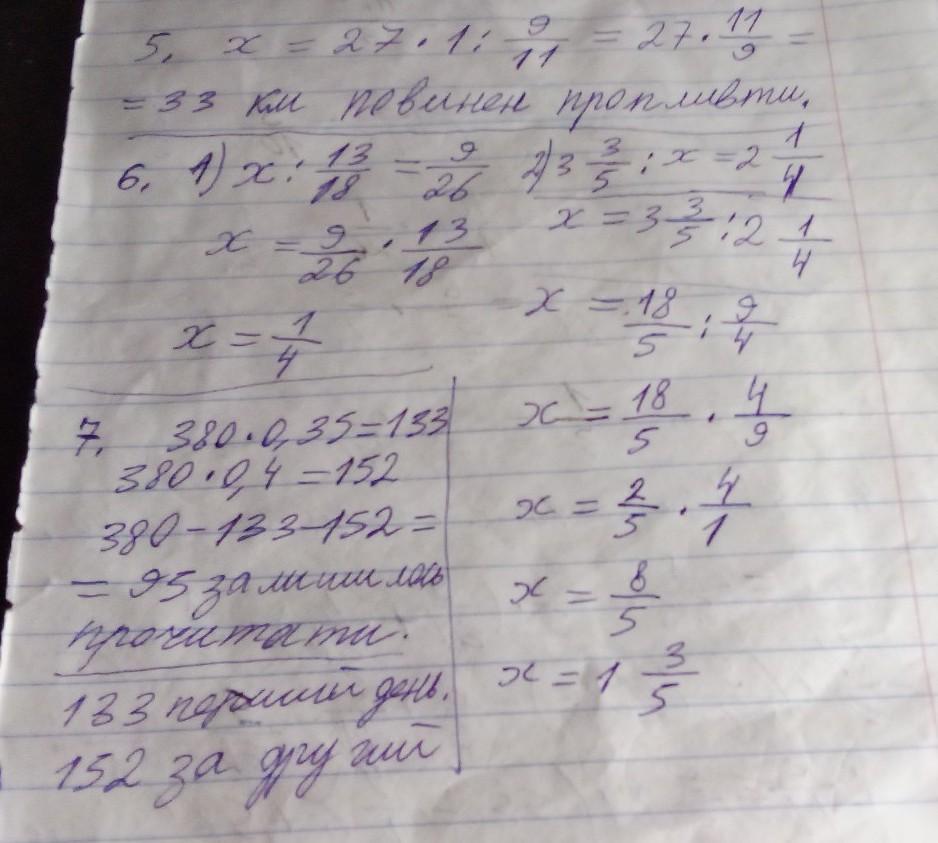 5. x = 27 · 1 : 9/11 = 27 · 11/9 =
= 33 км повинен пропливти.
6. 1) x : 13/18 = 9/26
x = 9/26 · 13/18
x = 1/4
2) 3 3/5 : x = 2 1/4
x = 3 3/5 : 2 1/4
x = 18/5 : 9/4
x = 18/5 · 4/9
x = 2/5 · 4/1
x = 8/5
x = 1 3/5
7. 380 · 0,35 = 133
380 · 0,4 = 152
380 - 133 - 152 =
= 95 залишилось
прочитати.
133 перший день.
152 за другий